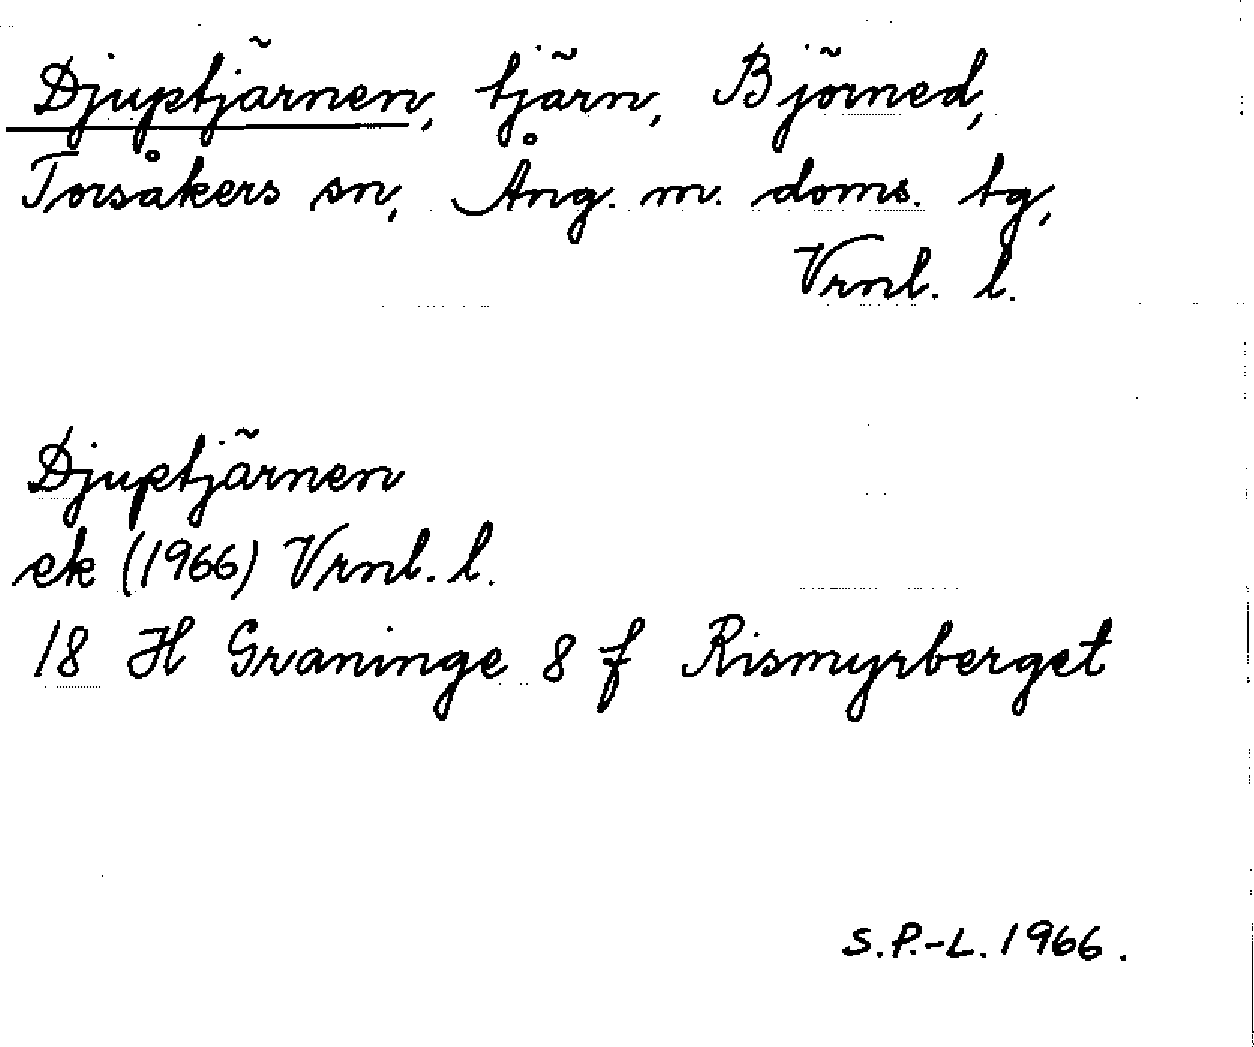 Djuptjärnen, tjärn, Björned,
Torsåkers sn, Ång. m. doms. tg,
Vrnl. l.
Djuptjärnen
ek (1966) Vrnl. l.
18 H Graninge 8 f Rismyrberget
S.P.-L. 1966.